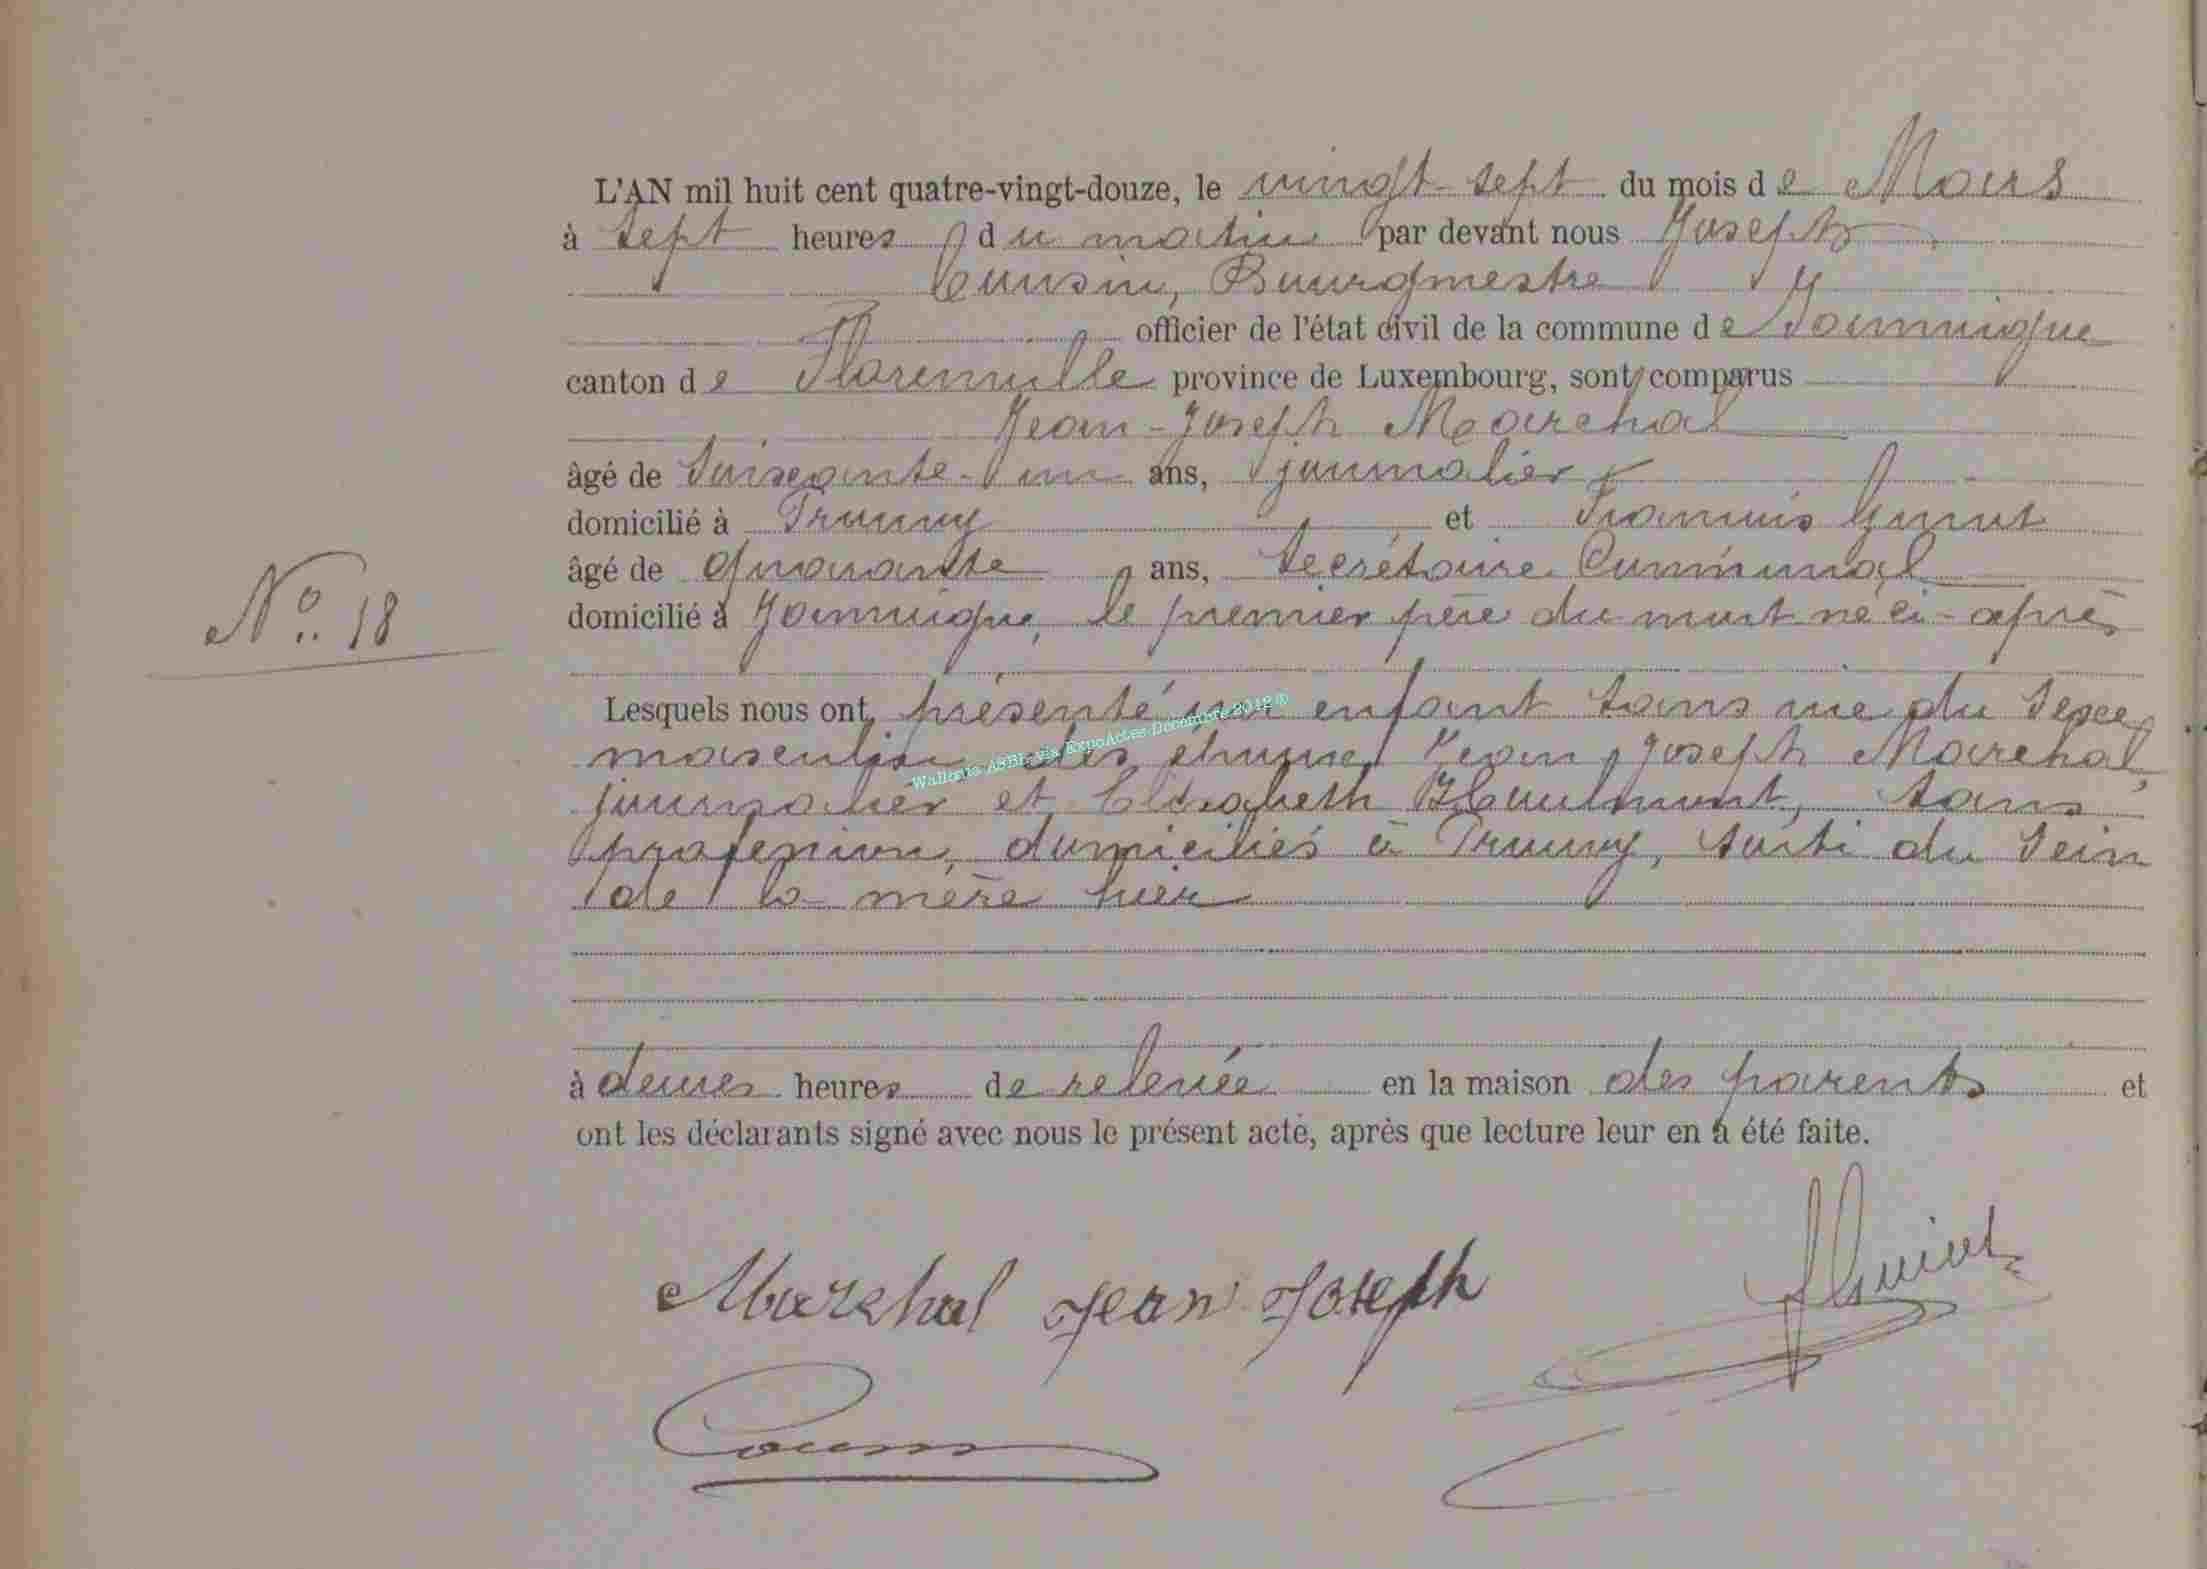 L'AN mil huit cent quatre-vingt-douze, le vingt-sept du mois de Mars
à sept heures du matin par devant nous Joseph
Cousin, Bourgmestre
officier de l'état civil de la commune de Jamoigne
canton de Florenville province de Luxembourg, sont comparus
Jean-Joseph Marchal
âgé de soixante-un ans, journalier
domicilié à Prouvy et François Guiot
âgé de quarante ans, secrétaire communal
N° 18
domicilié à Jamoigne, le premier père du mort né ci-après
Lesquels nous ont présenté un enfant sans vie du sexe
Wallonia ASBL via ExpoActes Décembre 2012 ©
masculin des époux Jean Joseph Marchal,
journalier et Elisabeth Houlmont, sans
profession, domiciliés à Prouvy, sorti du sein
de la mère hier
à deux heures de relevée en la maison des parents et
ont les déclarants signé avec nous le présent acte, après que lecture leur en a été faite.
Marchal Jean Joseph
Guiot
Cousin